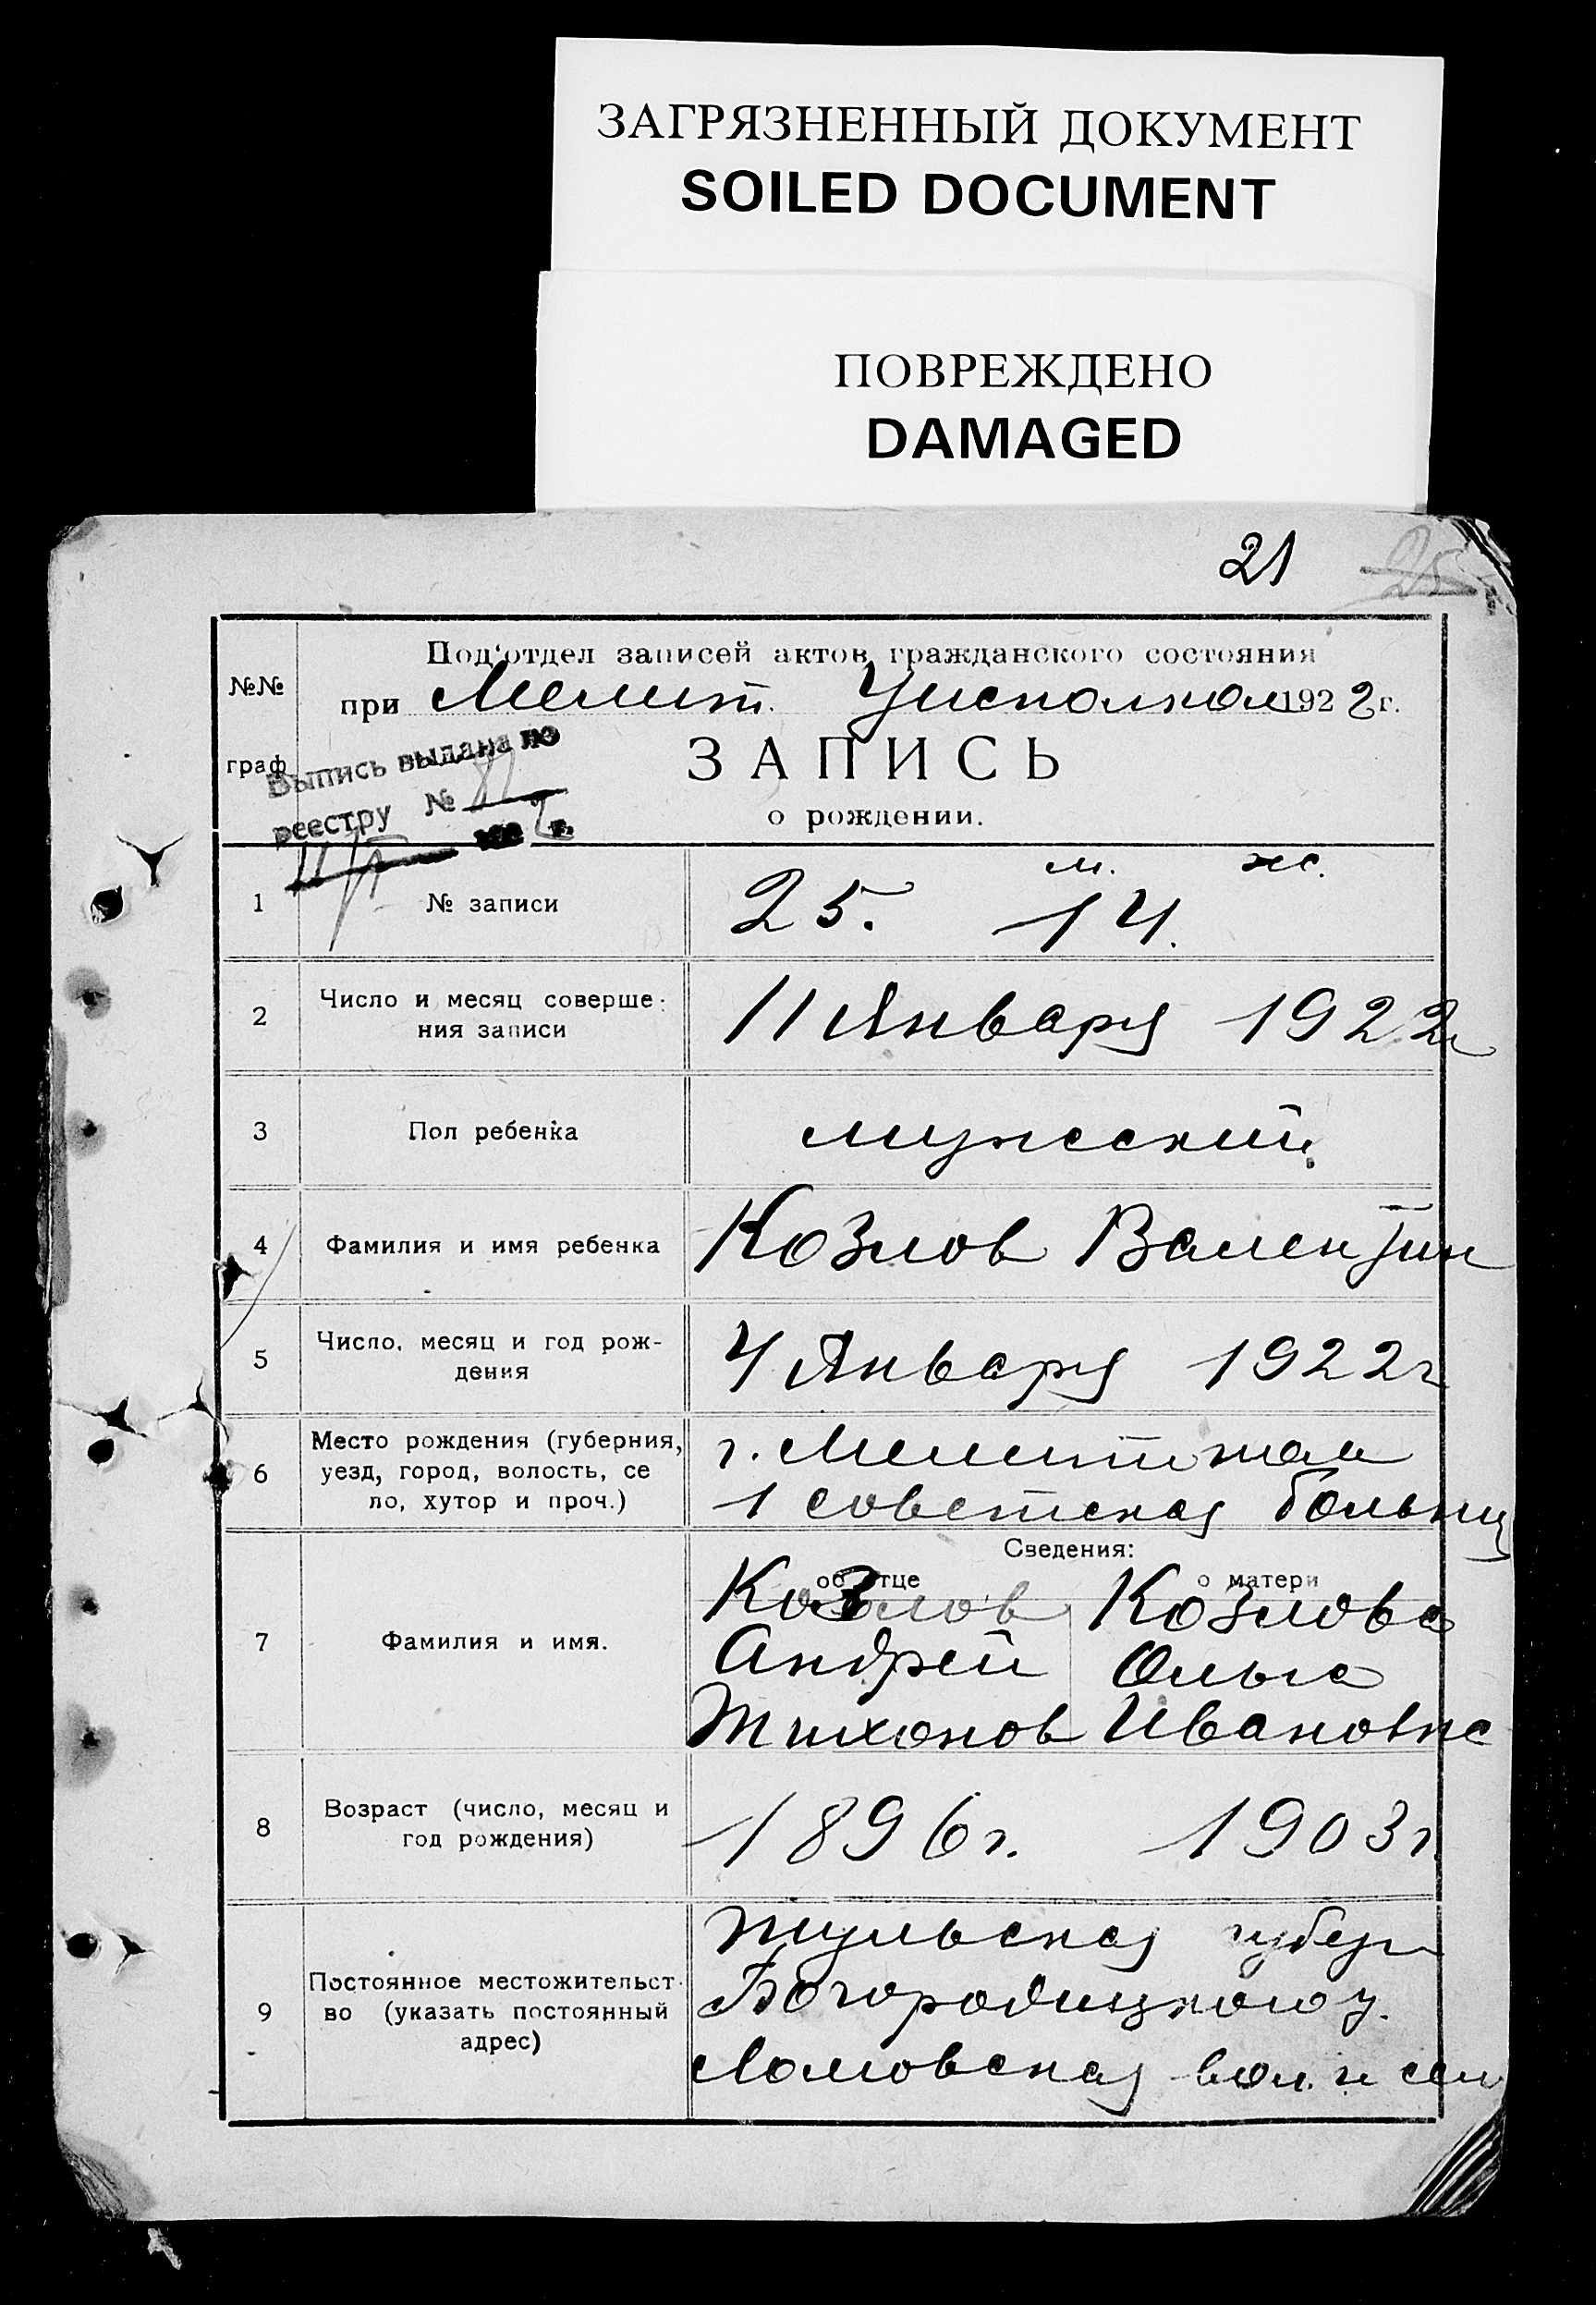 ЗАГРЯЗНЕННЫЙ ДОКУМЕНТ
SOILED DOCUMENT
ПОВРЕЖДЕНО
DAMAGED
21 25
№№ граф
Под'отдел записей актов гражданского состояния
при Мелит. Уисполком 1922 г.
Выпись выдана по
реестру № 81
192 2 г.
ЗАПИСЬ
о рождении.
м. ж.
1 № записи 25. 14.
2 Число и месяц соверше-
ния записи 11 Января 1922 г
3 Пол ребенка мужеский.
4 Фамилия и имя ребенка Козлов Валентин
5 Число, месяц и год рож-
дения 4 Января 1922 г
6 Место рождения (губерния,
уезд, город, волость, се
ло, хутор и проч.)
г. Мелитополь
1 советская больниц
Сведения:
об отце о матери
7 Фамилия и имя.
Козлов Козлова
Андрей Ольга
Тихонов Ивановна
8 Возраст (число, месяц и
год рождения) 1896 г. 1903 г
9 Постоянное местожительст-
во (указать постоянный
адрес)
Тульская губерн
Богородицкого у.
Ломовская вол. и сел